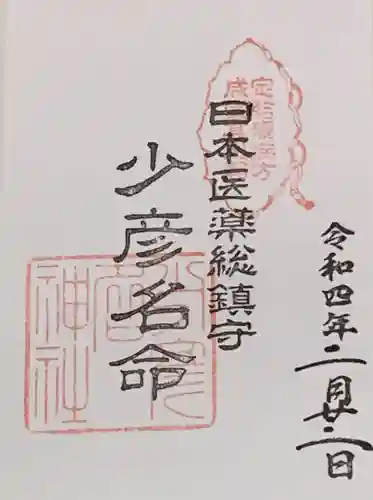 令和四年二月廿二日
日本医薬総鎮守
少彦名命
少彦名神社